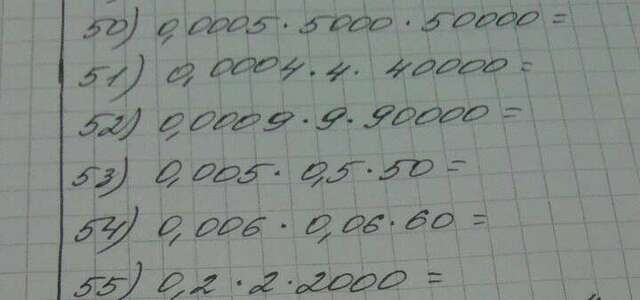 50) 0,0005 · 5000 · 50000 =
51) 0,0004 · 4 · 40000 =
52) 0,0009 · 9 · 90000 =
53) 0,005 · 0,5 · 50 =
54) 0,006 · 0,06 · 60 =
55) 0,2 · 2 · 2000 =